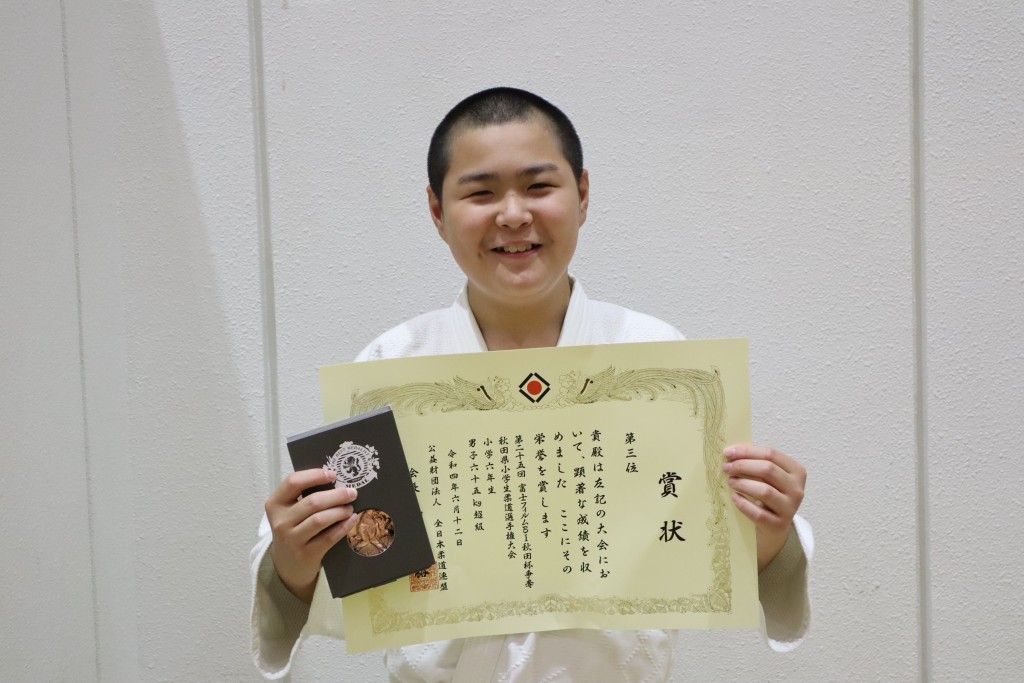 賞状
第三位
貴殿は左記の大会にお
いて、顕著な成績を収
めました ここにその
栄誉を賞します
第二十五回 富士フイルムBI秋田杯争奪
秋田県小学生柔道選手権大会
小学六年生
男子六十五kg超級
令和四年六月十二日
公益財団法人 全日本柔道連盟
会長
MEDAL